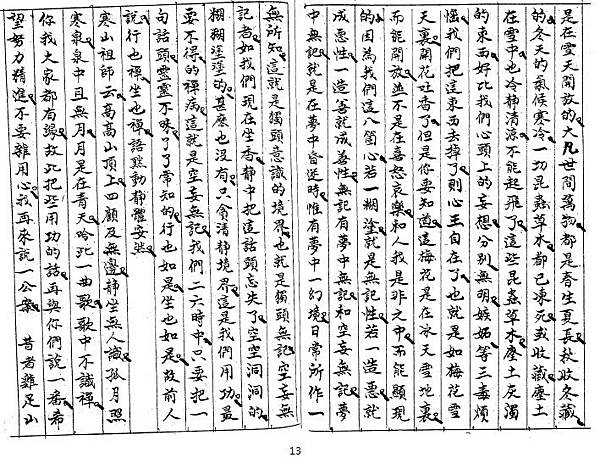 是在雪天開放的大凡世間萬物都是春生夏長秋收冬藏
的冬天的氣候寒冷一切昆蟲草木都已凍死或收藏塵土
在雪中也冷靜清涼不能起飛了這些昆蟲草木塵土灰濁
的東西好比我們心頭上的妄想分別無明嫉妬等三毒煩
惱我們把這東西去掉了則心王自在了也就是如梅花雪
天裏開花吐香了但是你要知道這梅花是在冰天雪地裏
而能開放並不是在喜怒哀樂和人我是非之中而能顯現
的因為我們這八箇心若一糊塗就是無記性若一造惡就
成惡性一造善就成善性無記有夢中無記和空妄無記夢
中無記就是在夢中昏迷時惟有夢中一幻境日常所作一
無所知這就是獨頭意識的境界也就是獨頭無記空妄無
記者如我們現在坐香靜中把這話頭忘失了空空洞洞的
糊糊塗塗的甚麼也沒有只貪清靜境界這是我們用功最
要不得的禪病這就是空妄無記我們二六時中只要把一
句話頭靈靈不昧了了常知的行也如是坐也如是故前人
說行也禪坐也禪語默動靜體安然
寒山祖師云高高山頂上四顧及無邊靜坐無人識孤月照
寒泉泉中且無月月是在青天吟此一曲歌歌中不識禪
你我大家都有緣故此把些用功的話再與你們說一番希
望努力精進不要雜用心我再來說一公案 昔者雞足山
13